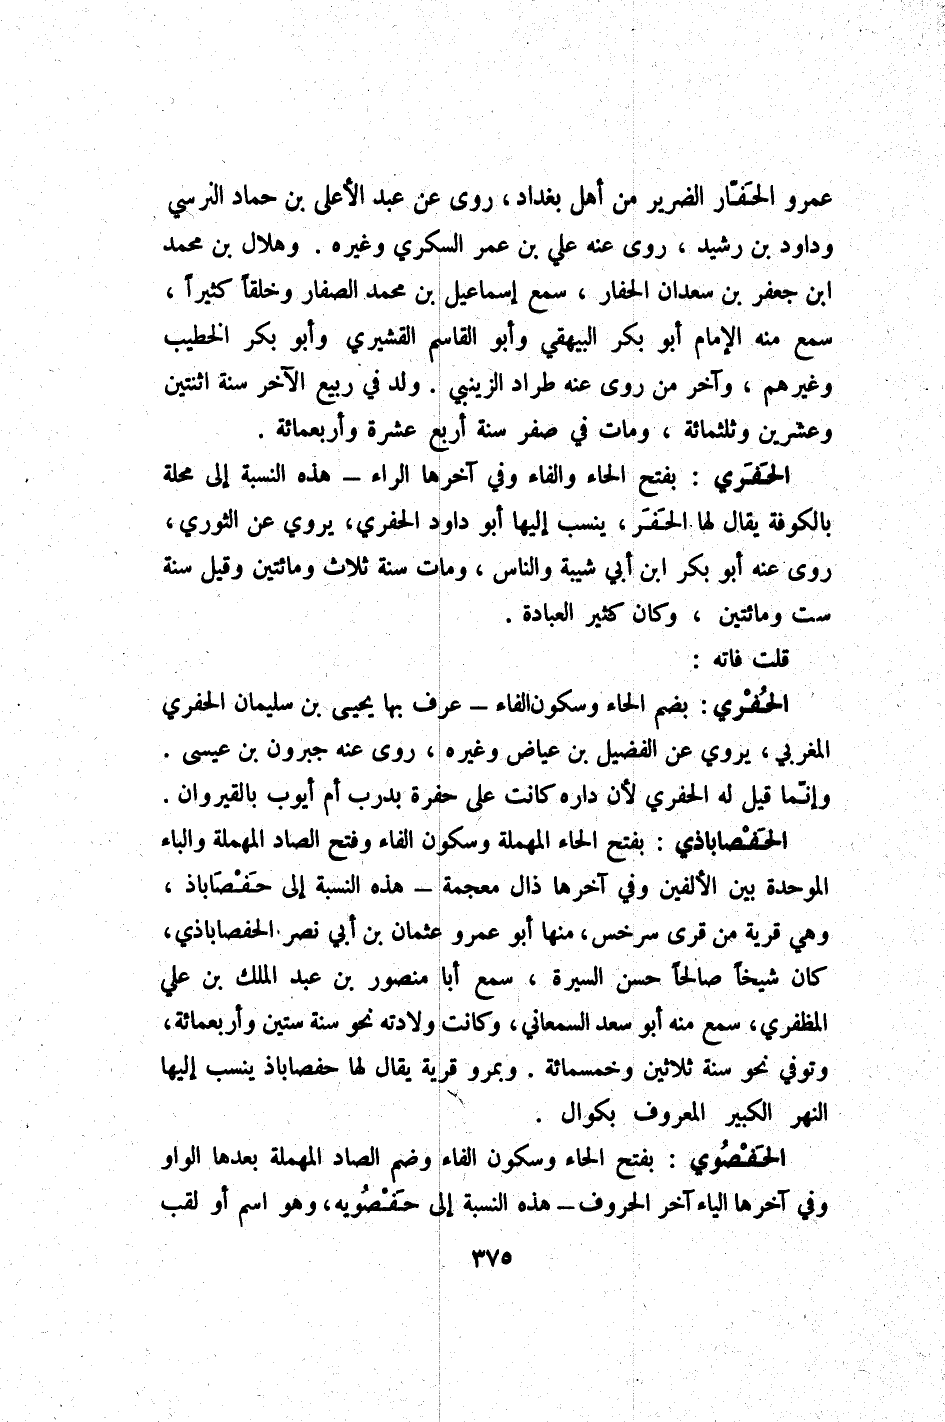 عمرو الحَفّار الضرير من أهل بغداد ، روى عن عبد الأعلى بن حماد النرسي
وداود بن رشيد ، روى عنه علي بن عمر السكري وغيره . وهلال بن محمد
ابن جعفر بن سعدان الحفار ، سمع إسماعيل بن محمد الصفار وخلقاً كثيراً ،
سمع منه الإمام أبو بكر البيهقي وأبو القاسم القشيري وأبو بكر الخطيب
وغيرهم ، وآخر من روى عنه طراد الزينبي . ولد في ربيع الآخر سنة اثنتين
وعشرين وثلثمائة ، ومات في صفر سنة أربع عشرة وأربعمائة .
الحَفَري : بفتح الحاء والفاء وفي آخرها الراء – هذه النسبة إلى محلة
بالكوفة يقال لها الحَفَر ، ينسب إليها أبو داود الحفري، يروي عن الثوري ،
روى عنه أبو بكر ابن أبي شيبة والناس ، ومات سنة ثلاث ومائتين وقيل سنة
ست ومائتين ، وكان كثير العبادة .
قلت فاته :
الحُفْري : بضم الحاء وسكون الفاء – عرف بها يحيى بن سليمان الحفري
المغربي ، يروي عن الفضيل بن عياض وغيره ، روى عنه جبرون بن عيسى .
وإنّما قيل له الحفري لأن داره كانت على حفرة بدرب أم أيوب بالقيروان .
الحَفْصاباذي : بفتح الحاء المهملة وسكون الفاء وفتح الصاد المهملة والباء
الموحدة بين الألفين وفي آخرها ذال معجمة – هذه النسبة إلى حَفْصَاباذ ،
وهي قرية من قرى سرخس، منها أبو عمرو عثمان بن أبي نصر الحفصاباذي،
كان شيخاً صالحاً حسن السيرة ، سمع أبا منصور بن عبد الملك بن علي
المظفري، سمع منه أبو سعد السمعاني، وكانت ولادته نحو سنة ستين وأربعمائة،
وتوفي نحو سنة ثلاثين وخمسمائة . وبمرو قرية يقال لها حفصاباذ ينسب إليها
النهر الكبير المعروف بكوال .
الحَفْصُوي : بفتح الحاء وسكون الفاء وضم الصاد المهملة بعدها الواو
وفي آخرها الياء آخر الحروف – هذه النسبة إلى حَفْصُويه، وهو اسم أو لقب
٣٧٥